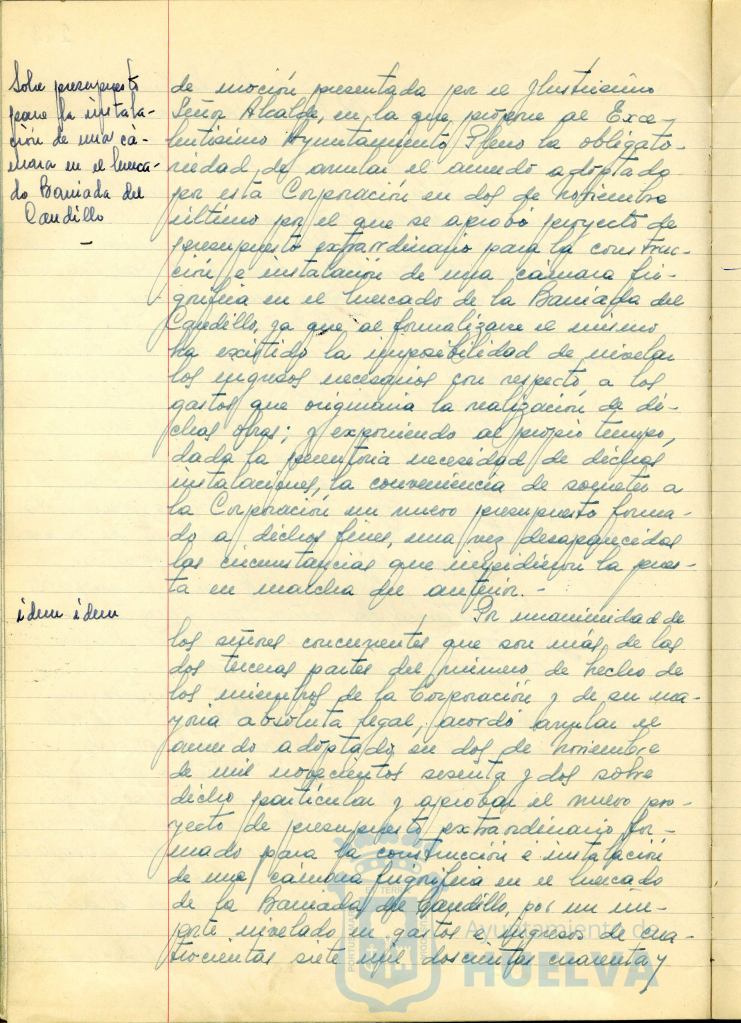 Sobre presupuesto
para la instala-
ción de una cá-
mara en el merca-
do Barriada del
Caudillo
de moción presentada por el Ilustrísimo
Señor Alcalde, en la que propone al Exce-
lentísimo Ayuntamiento Pleno la obligato-
riedad de anular el acuerdo adoptado
por esta Corporación en dos de noviembre
último por el que se aprobó proyecto de
presupuesto extraordinario para la construc-
ción e instalación de una cámara fri-
grífica en el mercado de la Barriada del
Caudillo, ya que al formalizarse el mismo
ha existido la imposibilidad de nivelar
los ingresos necesarios con respecto a los
gastos que originaria la realización de di-
chas obras; y exponiendo al propio tiempo,
dada la perentoria necesidad de dichas
instalaciones, la conveniencia de someter a
la Corporación un nuevo presupuesto forma-
do a dichos fines, una vez desaparecidas
las circunstancias que impidieron la pues-
ta en marcha del anterior. -
idem idem
Por unanimidad de
los señores concurrentes que son más de las
dos terceras partes del número de hecho de
los miembros de la Corporación y de su ma-
yoria absoluta legal, acordó anular el
acuerdo adoptado en dos de noviembre
de mil novecientos sesenta y dos sobre
dicho particular y aprobar el nuevo pro-
yecto de presupuesto extraordinario for-
mado para la construcción e instalación
de una cámara frigrífica en el mercado
de la Barriada del Caudillo, por un im-
porte nivelado en gastos e ingresos de cua-
trocientas siete mil doscientas cuarenta y
Ayuntamiento de
HUELVA